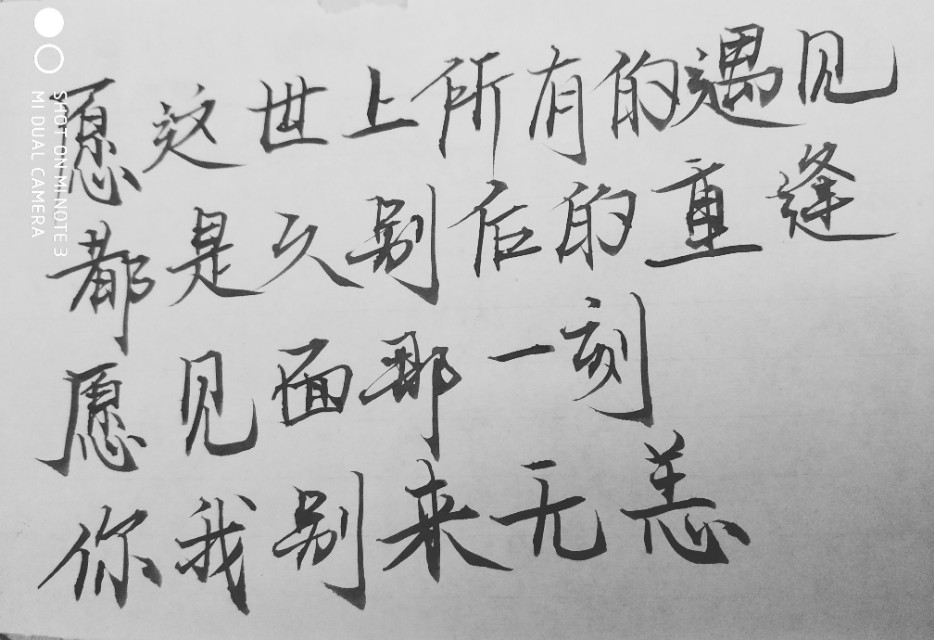 愿这世上所有的遇见
都是久别后的重逢
愿见面那一刻
你我别来无恙
SHOT ON MI NOTE 3
MI DUAL CAMERA